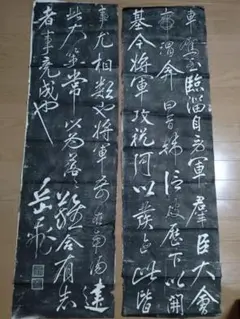 車駕至臨淄自勞軍羣臣大會
帝謂弇曰昔韓信破歷下以開
基今將軍攻祝阿以發迹此皆
事尤相類也將軍前在南陽建
此大策常以為落落難合有志
者事竟成也
岳飛